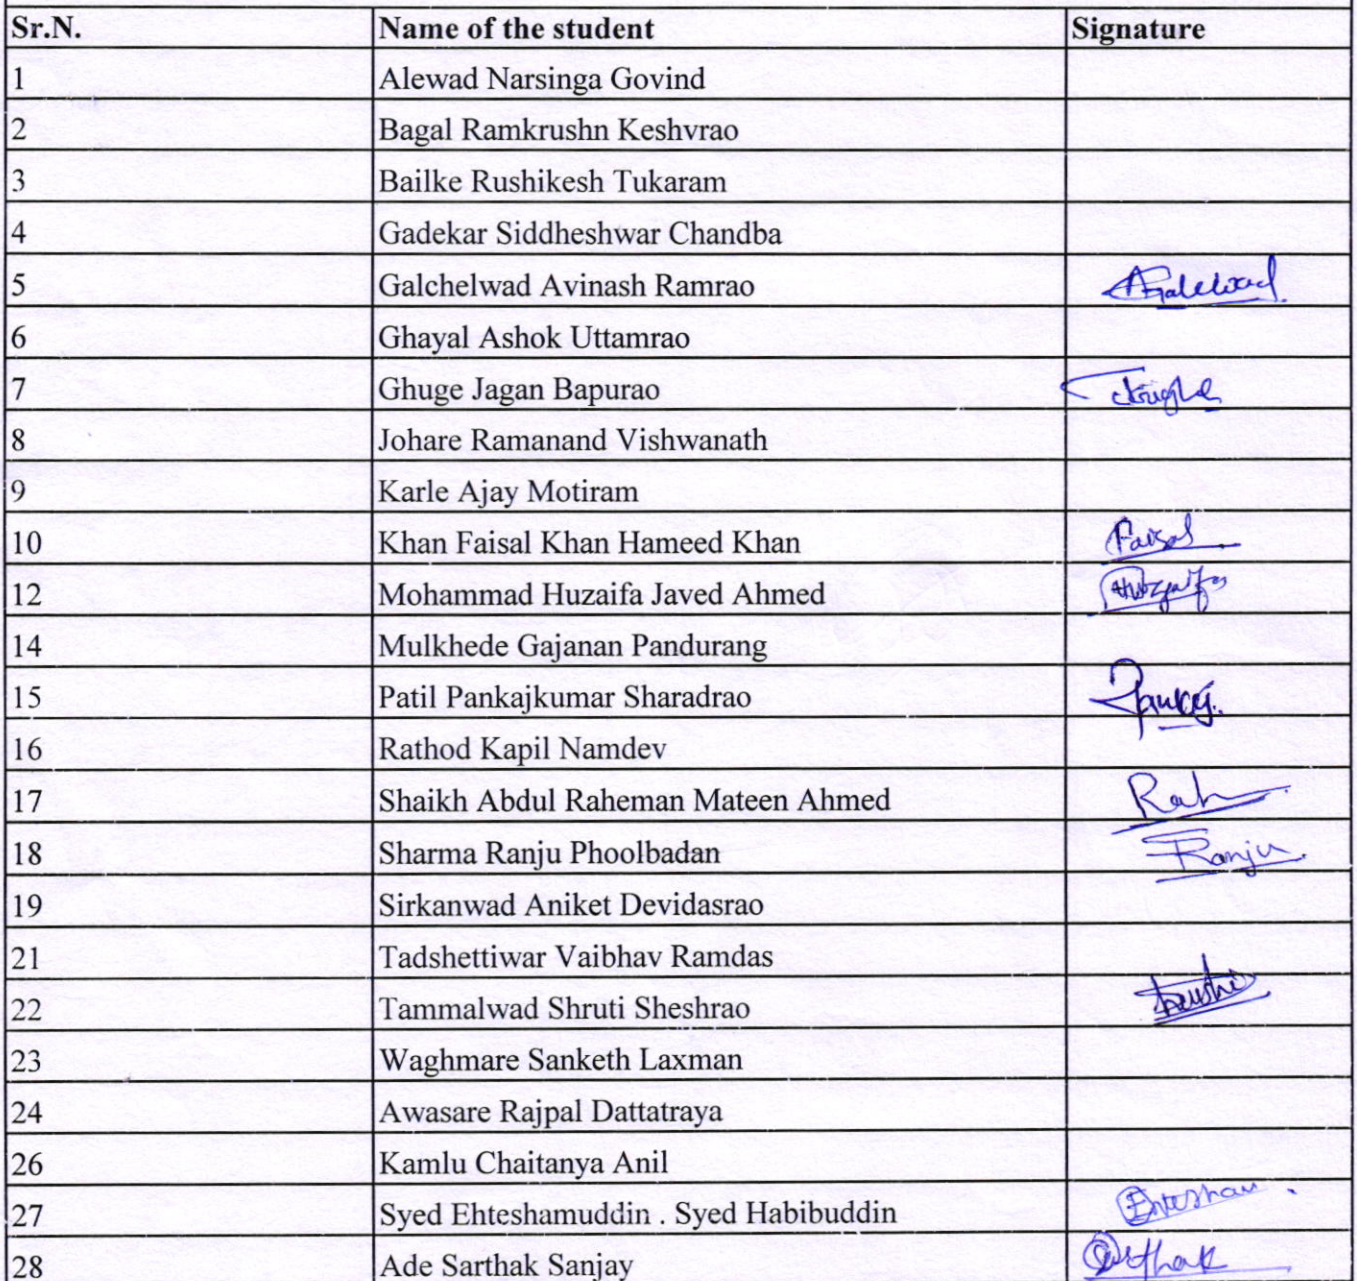 Sr.N. Name of the student Signature
1 Alewad Narsinga Govind
2 Bagal Ramkrushn Keshvrao
3 Bailke Rushikesh Tukaram
4 Gadekar Siddheshwar Chandba
5 Galchelwad Avinash Ramrao
6 Ghayal Ashok Uttamrao
7 Ghuge Jagan Bapurao
8 Johare Ramanand Vishwanath
9 Karle Ajay Motiram
10 Khan Faisal Khan Hameed Khan Faisal
12 Mohammad Huzaifa Javed Ahmed Huzaifa
14 Mulkhede Gajanan Pandurang
15 Patil Pankajkumar Sharadrao Pankaj
16 Rathod Kapil Namdev
17 Shaikh Abdul Raheman Mateen Ahmed Rah
18 Sharma Ranju Phoolbadan Ranju
19 Sirkanwad Aniket Devidasrao
21 Tadshettiwar Vaibhav Ramdas
22 Tammalwad Shruti Sheshrao
23 Waghmare Sanketh Laxman
24 Awasare Rajpal Dattatraya
26 Kamlu Chaitanya Anil
27 Syed Ehteshamuddin . Syed Habibuddin
28 Ade Sarthak Sanjay